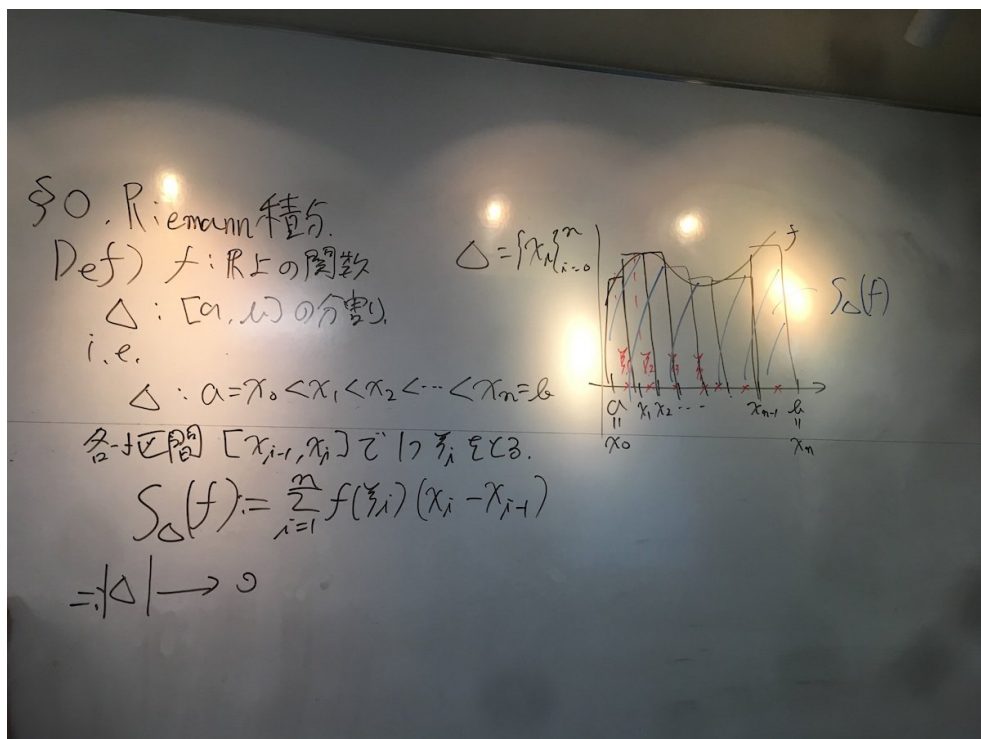 §0. Riemann積分.
Def) f : ℝ上の関数
Δ : [a, b] の分割.
i.e.
Δ : a = x₀ < x₁ < x₂ < ⋯ < xₙ = b
各小区間 [xᵢ₋₁, xᵢ] で 1つ ξᵢ をとる.
S_Δ(f) := Σ_{i=1}^{n} f(ξᵢ)(xᵢ − xᵢ₋₁)
=:|Δ| → 0
Δ = {xᵢ}ⁿᵢ₌₀
f
S_Δ(f)
ξ₁ ξ₂ ξ₃
a x₁ x₂ ⋯ xₙ₋₁ b
|| ||
x₀ xₙ